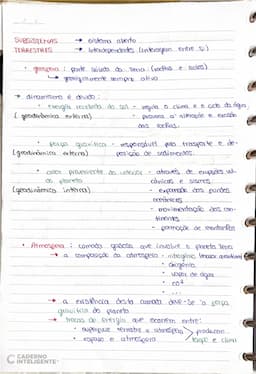 SUBSISTEMAS → sistema aberto
TERRESTRES → interdependentes (interagem entre si)
• geosfera: parte sólida da terra (rochas e solos)
↳ geologicamente sempre ativa
→ dinamismo é devido:
• energia recebida do sol - regula o clima e o ciclo da água,
(geodinâmica externa) • provoca a alteração e erosão
das rochas.
• força gravítica - responsável pelo transporte e de-
(geodinâmica externa) posição de sedimentos.
• calor proveniente do interior - através de erupções vul-
do planeta cânicas e sismos.
(geodinâmica interna) - expansão dos fundos
oceânicos
- movimentação dos con-
tinentes
- formação de montanhas
• Atmosfera: camada gasosa que envolve o planeta terra
→ a composição da atmosfera • nitrogénio
• oxigénio
• vapor de água
• co²
...
→ a existência desta camada deve-se à força
gravítica do planeta
→ trocas de energia que ocorrem entre:
• superfície terrestre e atmosfera
• espaço e atmosfera
produzem
e clima
CADERNO
INTELIGENTE